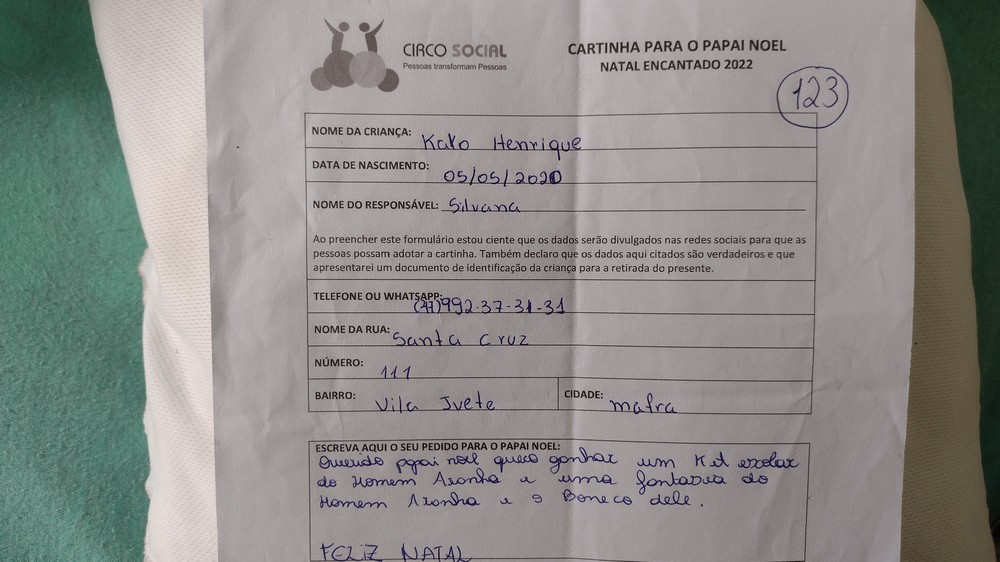 CIRCO SOCIAL
Pessoas transformam Pessoas
CARTINHA PARA O PAPAI NOEL
NATAL ENCANTADO 2022
123
NOME DA CRIANÇA: Kaio Henrique
DATA DE NASCIMENTO: 05/05/2020
NOME DO RESPONSÁVEL: Silvana
Ao preencher este formulário estou ciente que os dados serão divulgados nas redes sociais para que as
pessoas possam adotar a cartinha. Também declaro que os dados aqui citados são verdadeiros e que
apresentarei um documento de identificação da criança para a retirada do presente.
TELEFONE OU WHATSAPP: (47)992-37-31-31
NOME DA RUA: Santa Cruz
NÚMERO: 111
BAIRRO: Vila Ivete CIDADE: mafra
ESCREVA AQUI O SEU PEDIDO PARA O PAPAI NOEL:
Querido papai noel quero ganhar um Kit escolar
do Homem Aranha e uma fantasia do
Homem Aranha e o Boneco dele.
FELIZ NATAL